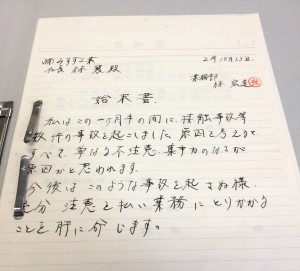 ㈱みすず工業 2年10月13日
社長 林 裏殿 業務部
林 宏道 林
始末書
私はこの一ヶ月半の間に、接触事故等
数件の事故を起こしました。原因を考えると
すべて、単なる不注意、集中力のなさが
原因かと思われます。
今後はこのような事故を起さぬ様、
充分 注意を払い業務にとりかかる
ことを肝に命じます。